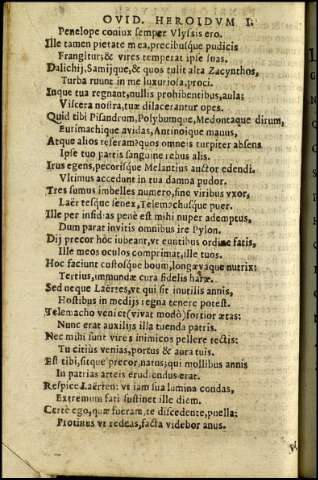 OVID. HEROIDVM I.
Penelope coniux semper Vlyssis ero.
Ille tamen pietate mea, precibusque pudicis
Frangitur; & vires temperat ipse suas.
Dulichij, Samijque, & quos tulit alta Zacynthos,
Turba ruunt in me luxuriosa, proci.
Inque tua regnant, nullis prohibentibus, aula:
Viscera nostra, tuæ dilacerantur opes.
Quid tibi Pisandrum, Polybumque, Medontaque dirum,
Eurimachique avidas, Antinoique manus,
Atque alios referam? quos omneis turpiter absens
Ipse tuo partis sanguine rebus alis.
Irus egens, pecorisque Melantius auctor edendi.
Vltimus accedunt in tua damna pudor.
Tres sumus imbelles numero, sine viribus vxor,
Laërtesque senex, Telemachusque puer.
Ille per insidias penè est mihi nuper ademptus,
Dum parat invitis omnibus ire Pylon.
Dij precor hóc iubeant, vt euntibus ordine fatis,
Ille meos oculos comprimat, ille tuos.
Hoc faciunt custosque boum, longævaque nutrix:
Tertius, immundæ cura fidelis haræ.
Sed neque Laërtes, vt qui sit inutilis annis,
Hostibus in medijs regna tenere potest.
Telemacho veniet (vivat modò) fortior ætas:
Nunc erat auxilijs illa tuenda patris.
Nec mihi sunt vires inimicos pellere tectis:
Tu citiùs venias, portus & aura tuis.
Est tibi, sitque precor, natus; qui mollibus annis
In patrias arteis erudiendus erat.
Respice Laërten: vt iam sua lumina condas,
Extremum fati sustinet ille diem.
Certè ego, quæ fueram, te discedente, puella:
Protinus vt redeas, facta videbor anus.